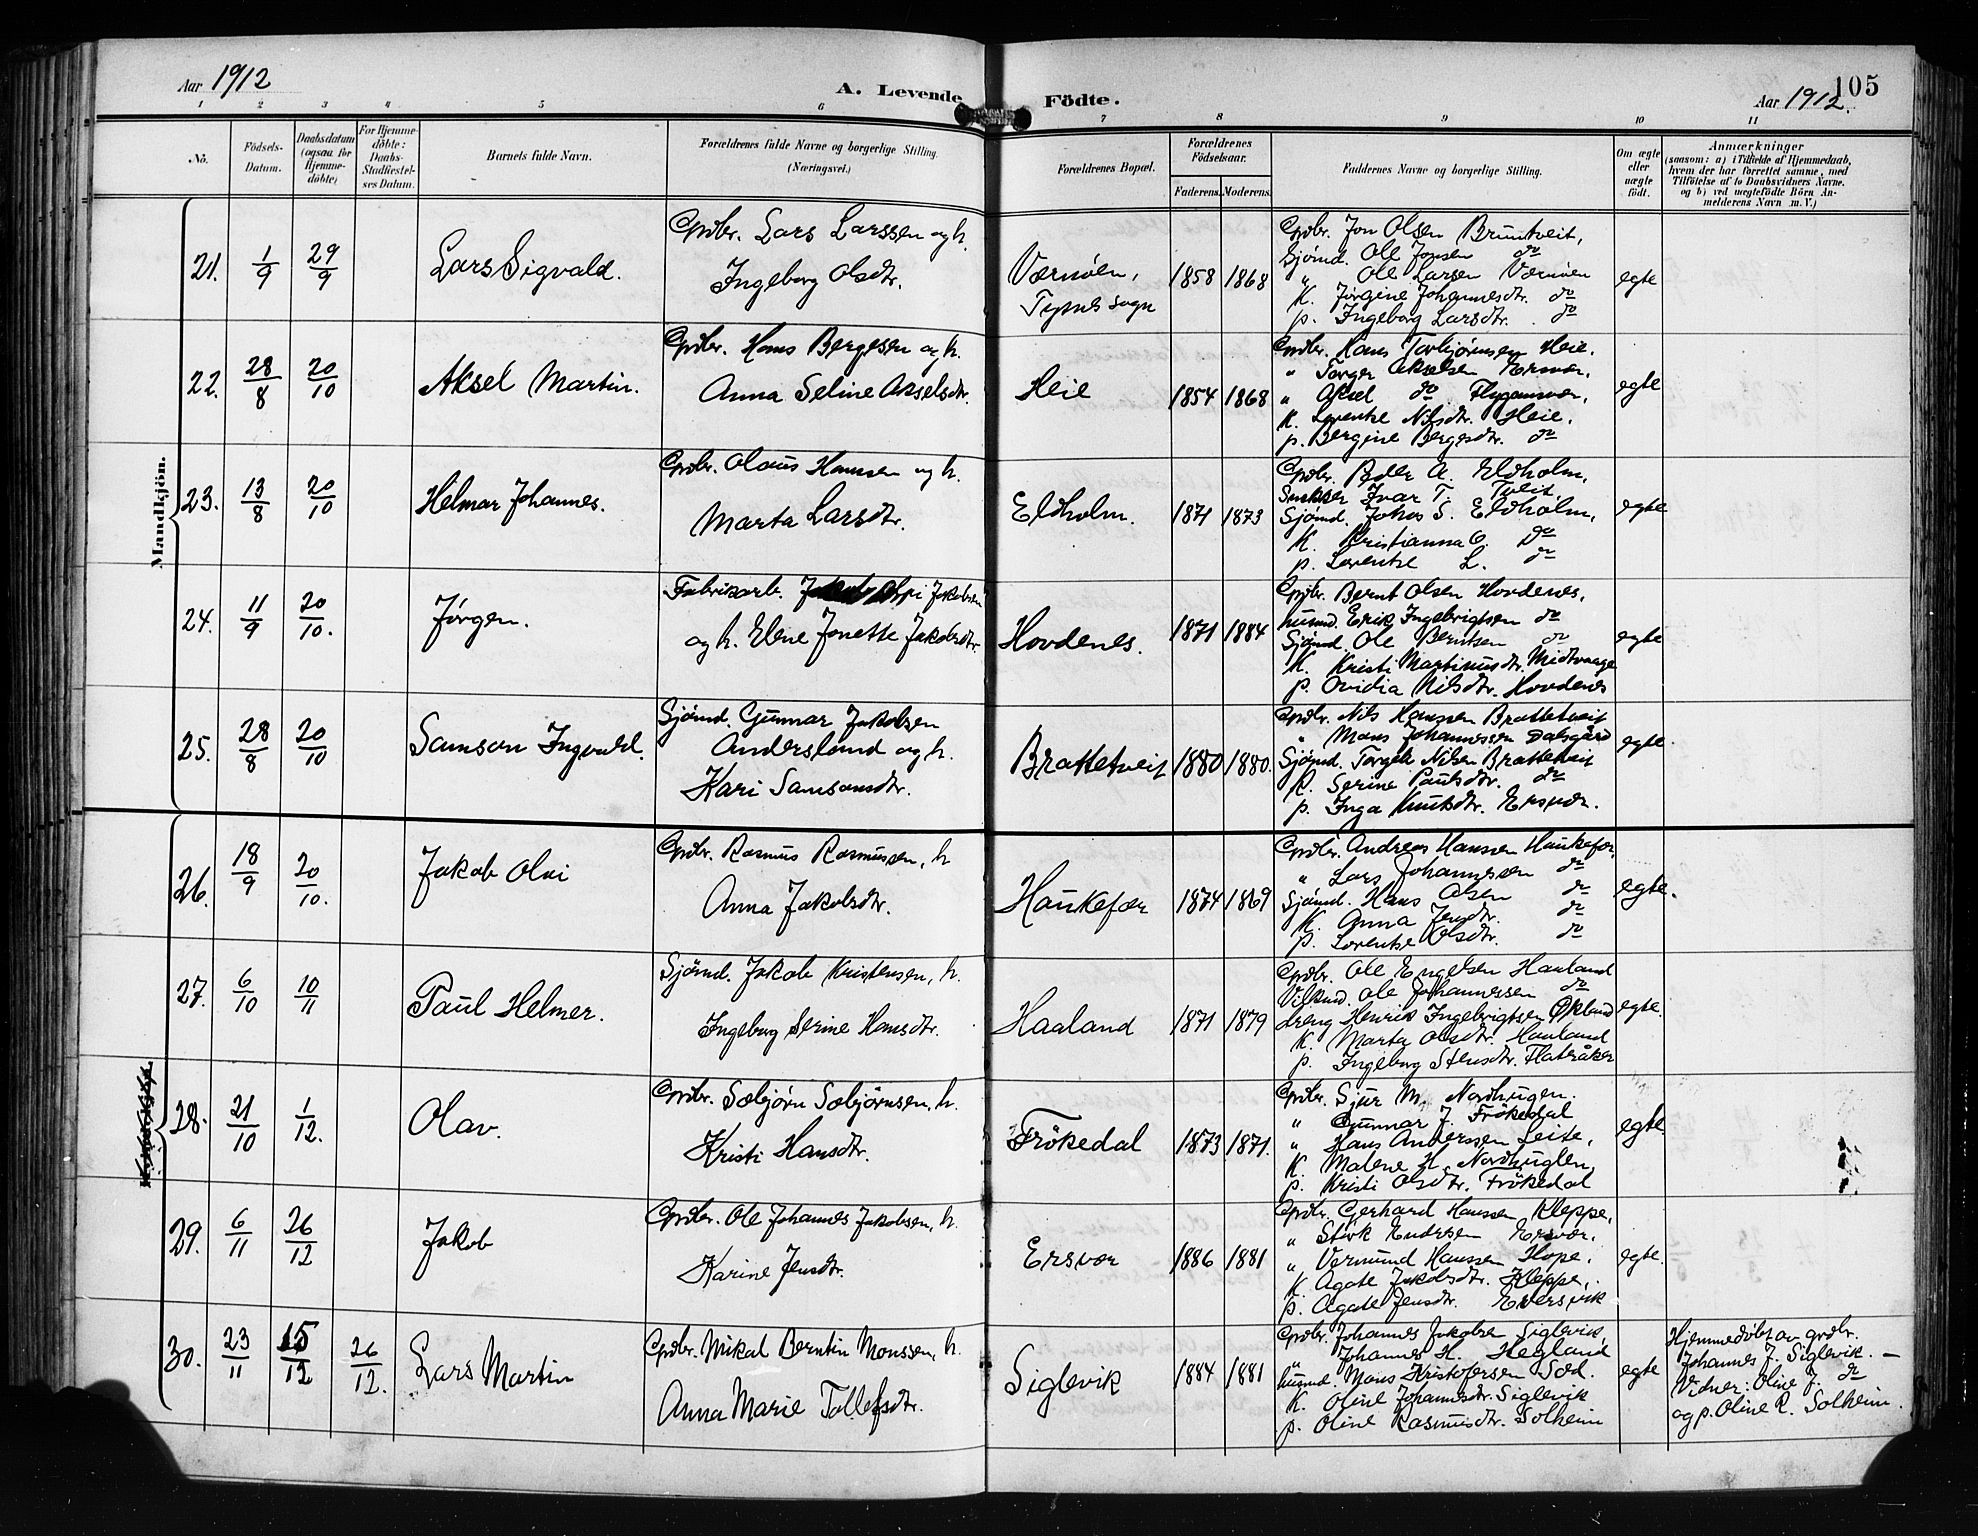 Aar 1912
A. Levende Födte.
Aar 1912.
105
1 2 3 4 5 6 7 8 9 10 11
No.
Födsels-Datum.
Daabsdatum (ogsaa for Hjemme-döbte)
For Hjemme-döbte: Daabs-Stadfæstel-ses Datum.
Barnets fulde Navn.
Forældrenes fulde Navne og borgerlige Stilling. (Næringsvei.)
Forældrenes Bopæl.
Forældrenes Födselsaar.
Faderens. Moderens.
Faddernes Navne og borgerlige Stilling.
Om ægte eller uægte födt.
Anmærkninger
(saasom: a) i Tilfælde af Hjemmedaab,
hvem der har forrettet samme, med
Tilföielse af to Daabsvidners Navne.
og b) ved uægtefödte Börn An-
melderens Navn m. V.)
Mandkjön.
21. 1/9 29/9 Lars Sigvald. Grdbr. Lars Larssen og h.
Ingeborg Olsdtr.
Værnöen,
Tysnes sogn
1858 1868
Grdbr. Jon Olsen Bruntveit,
Sjömd. Ole Jonsen do
" Ole Larsen Værnöen
K. Jörgine Johannesdtr. do
p. Ingeborg Larsdtr. do
egte
22. 28/8 20/10 Aksel Martin. Grdbr. Hans Bergesen og h.
Anna Seline Akselsdtr.
Heie 1854 1868
Grdbr. Hans Torbjörnsen Heie.
" Torger Akselsen Ersvær,
" Aksel do Flygansvær,
K. Lorentse Nilsdtr. Heie,
p. Bergine Bergesdtr. do
egte
23. 13/8 20/10 Helmar Johannes. Grdbr. Olaus Hansen og h.
Marta Larsdtr.
Eldholm. 1871 1873
Grdbr. Peder A. Eldholm,
Snekker Ivar T. Tveit
Sjömd. Johas S. Eldholm,
K. Kristianna O. do
p. Lorentse L. do
egte
24. 11/9 20/10. Jörgen. Fabrikarb. Jakobsen
og h. Elene Jonette Jakobsdtr.
Hovdenes. 1871 1884
Grdbr. Bernt Olsen Hovdenes,
husmd. Erik Ingebrigtsen do
Sjömd. Ole Berntsen do
K. Kristi Martinusdtr. Midtvaage
p. Ovidia Nilsdtr. Hovdenes
egte
25. 28/8 20/10 Samson Ingvald. Sjömd. Gunnar Jakobsen
Andersland og h.
Kari Samsonsdtr.
Brattetveit 1880 1880.
Grdbr. Nils Hanssen Brattetveit
" Mons Johannessen Dalsgård
Sjömd. Torgils Nilsen Brattetveit
K. Serine Paulsdtr. do
p. Inga Knutsdtr. Ersvær.
egte.
26. 18/9 20/10. Jakob Olai Grdbr. Rasmus Rasmussen, h
Anna Jakobsdtr.
Haukefær 1874 1869
Grdbr. Andreas Hanssen Haukefær,
" Lars Johannessen do
Sjömd. Hans Olsen do
K. Anna Jensdtr. do
p. Lorentse Olsdtr. do
egte.
27. 6/10 10/11 Paul Helmer. Sjömd. Jakob Kristensen, h.
Ingeborg Serine Hansdtr.
Haaland 1871 1879
Grdbr. Ole Engelsen Haaland
Ole Johannessen do
dreng Henrik Ingebrigtsen Økland
K. Marta Olsdtr. Haaland
p. Ingeborg Stensdtr. Flatråker
egte.
28. 21/10 1/12. Olav. Grdbr. Sæbjörn Sæbjörnsen, h.
Kristi Hansdtr.
Frökedal 1873 1871.
Grdbr. Sjur M. Nordhuglen.
" Gunnar J. Frökedal
" Hans Anderssen Leite,
K. Malene H. Nordhuglen,
p. Kristi Olsdtr. Frökedal
egte.
29. 6/11 26/12 Jakob Grdbr. Ole Johannes Jakobsen, h.
Karine Jensdtr.
Ersvær 1886 1881
Grdbr. Gerhard Hanssen Kleppe,
" Störk Endresen Ersvær,
" Vermund Hanssen Hope,
K. Agate Jakobsdtr. Kleppe,
p. Agate Jensdtr. Eversvik
egte.
30. 23/11 15/12 26/12. Lars Martin Grdbr. Mikal Berntin Monssen, h.
Anna Marie Tollefsdtr.
Siglevik 1884 1881
Grdbr. Johannes Jakobsen Siglevik,
" Johannes H. Hegland
husmd. Mons Kristofersen Sæd.
K. Oline Johannesdtr. Siglevik
p. Oline Rasmusdtr. Solheim
egte
Hjemmedöbt av grdbr.
Johannes J. Siglevik. —
Vidner: Oline J. do
og p. Oline R. Solheim.